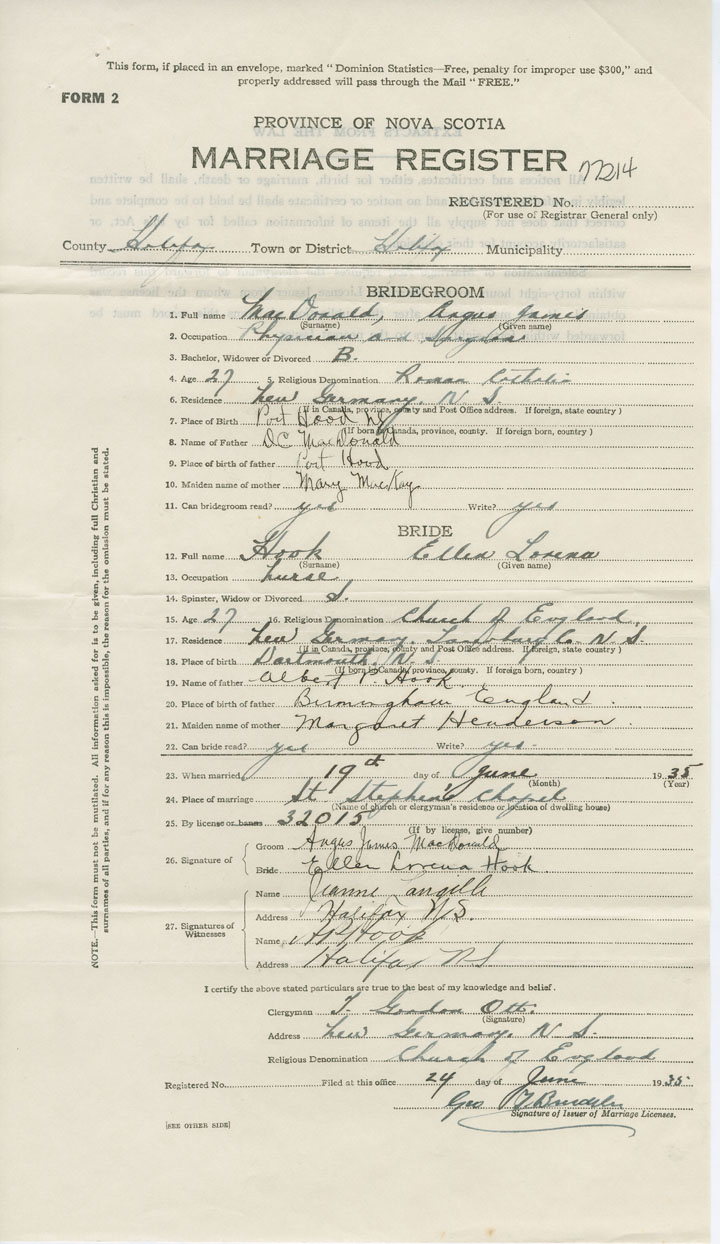 This form, if placed in an envelope, marked "Dominion Statistics—Free, penalty for improper use $300," and
properly addressed will pass through the Mail "FREE."
FORM 2
PROVINCE OF NOVA SCOTIA
MARRIAGE REGISTER
REGISTERED No.
(For use of Registrar General only)
County Halifax Town or District Halifax Municipality
BRIDEGROOM
1. Full name MacDonald, Angus James
(Surname) (Given name)
2. Occupation Physician and Surgeon
3. Bachelor, Widower or Divorced B.
4. Age 27 5. Religious Denomination Roman Catholic
6. Residence New Germany. N. S.
(If in Canada, province, county and Post Office address. If foreign, state country)
7. Place of Birth Port Hood NS
(If born in Canada, province, county. If foreign born, country)
8. Name of Father D.C. MacDonald
9. Place of birth of father Port Hood
10. Maiden name of mother Mary MacKay
11. Can bridegroom read? yes Write? yes
BRIDE
12. Full name Hook Ellen Lorena
(Surname) (Given name)
13. Occupation nurse
14. Spinster, Widow or Divorced S.
15. Age 27 16. Religious Denomination Church of England.
17. Residence New Germany. Lunenburg Co. N. S.
(If in Canada, province, county and Post Office address. If foreign, state country)
18. Place of birth Dartmouth, N. S.
(If born in Canada, province, county. If foreign born, country)
19. Name of father Albert P. Hook
20. Place of birth of father Birmingham England.
21. Maiden name of mother Margaret Henderson.
22. Can bride read? yes Write? yes
23. When married 19th day of June 1935
(Month) (Year)
24. Place of marriage St Stephen's Chapel
(Name of church or clergyman's residence or location of dwelling house)
25. By license or banns 32015
(If by license, give number)
26. Signature of
Groom Angus James MacDonald
Bride Ellen Lorena Hook
27. Signatures of Witnesses
Name Jeanne Langille
Address Halifax N.S.
Name A P Hook
Address Halifax NS
I certify the above stated particulars are true to the best of my knowledge and belief.
Clergyman T. Gordon Ott.
(Signature)
Address New Germany. N. S.
Religious Denomination Church of England
Registered No. Filed at this office 24 day of June 1935
Geo
Signature of Issuer of Marriage Licenses.
[SEE OTHER SIDE]
NOTE.—This form must not be mutilated. All information asked for is to be given, including full Christian and
surnames of all parties, and if for any reason this is impossible, the reason for the omission must be stated.